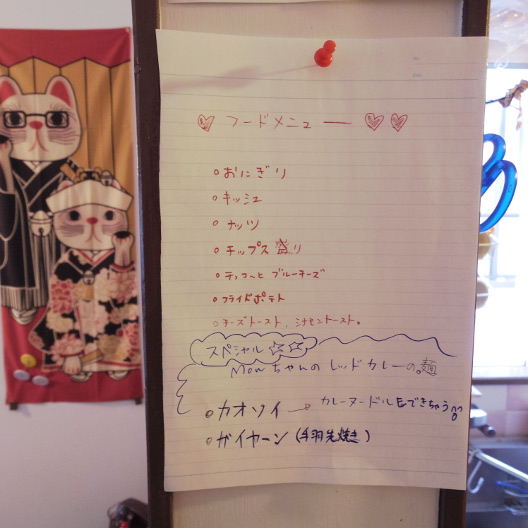 ♡ フードメニュー ♡♡
○おにぎり
○キッシュ
○ナッツ
○チップス盛り
○チョコっと ブルーチーズ
○フライドポテト
○チーズトースト、シナモントースト。
スペシャル ☆☆
Mowちゃんの レッドカレーの麺
○カオソイ → カレーヌードルもできちゃう
○ガイヤーン (手羽先焼き)